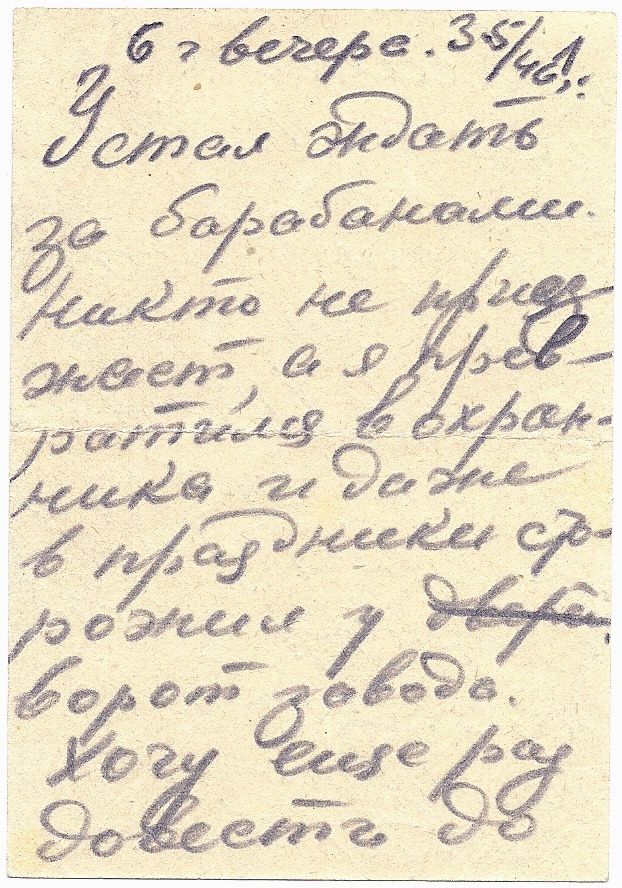 6 г вечера. 3-5/46 г.
Устал ждать
за барабанами.
Никто не приез
жает, а я прев-
ратился в охран-
ника и даже
в праздники сто-
рожил у дверей
ворот завода.
Хочу еще раз
довести до